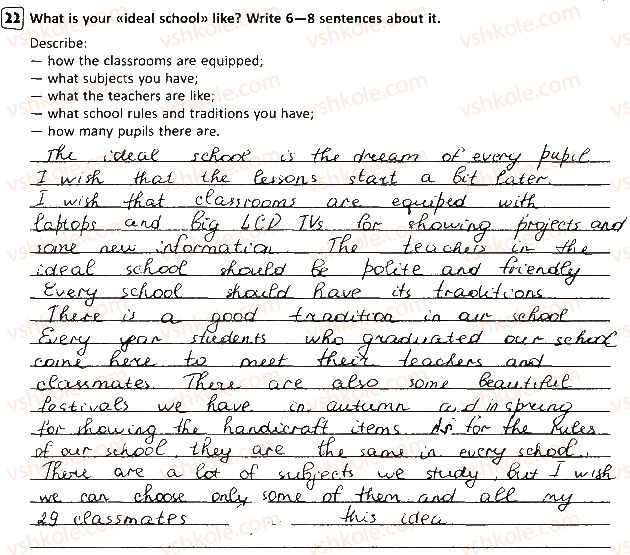 22 What is your «ideal school» like? Write 6—8 sentences about it.
Describe:
— how the classrooms are equipped;
— what subjects you have;
— what the teachers are like;
— what school rules and traditions you have;
— how many pupils there are.
The ideal school is the dream of every pupil
I wish that the lessons start a bit later.
I wish that classrooms are equiped with
laptops and big LCD TVs for showing projects and
some new information. The teachers in the
ideal school should be polite and friendly
Every school should have its traditions
There is a good tradition in our school
Every year students who graduated our school
come here to meet their teachers and
classmates. There are also some beautiful
festivals we have in autumn and in spring
for showing the handicraft items. As for the rules
of our school, they are the same in every school.
There are a lot of subjects we study, but I wish
we can choose only some of them and all my
29 classmates this idea
vshkole.com